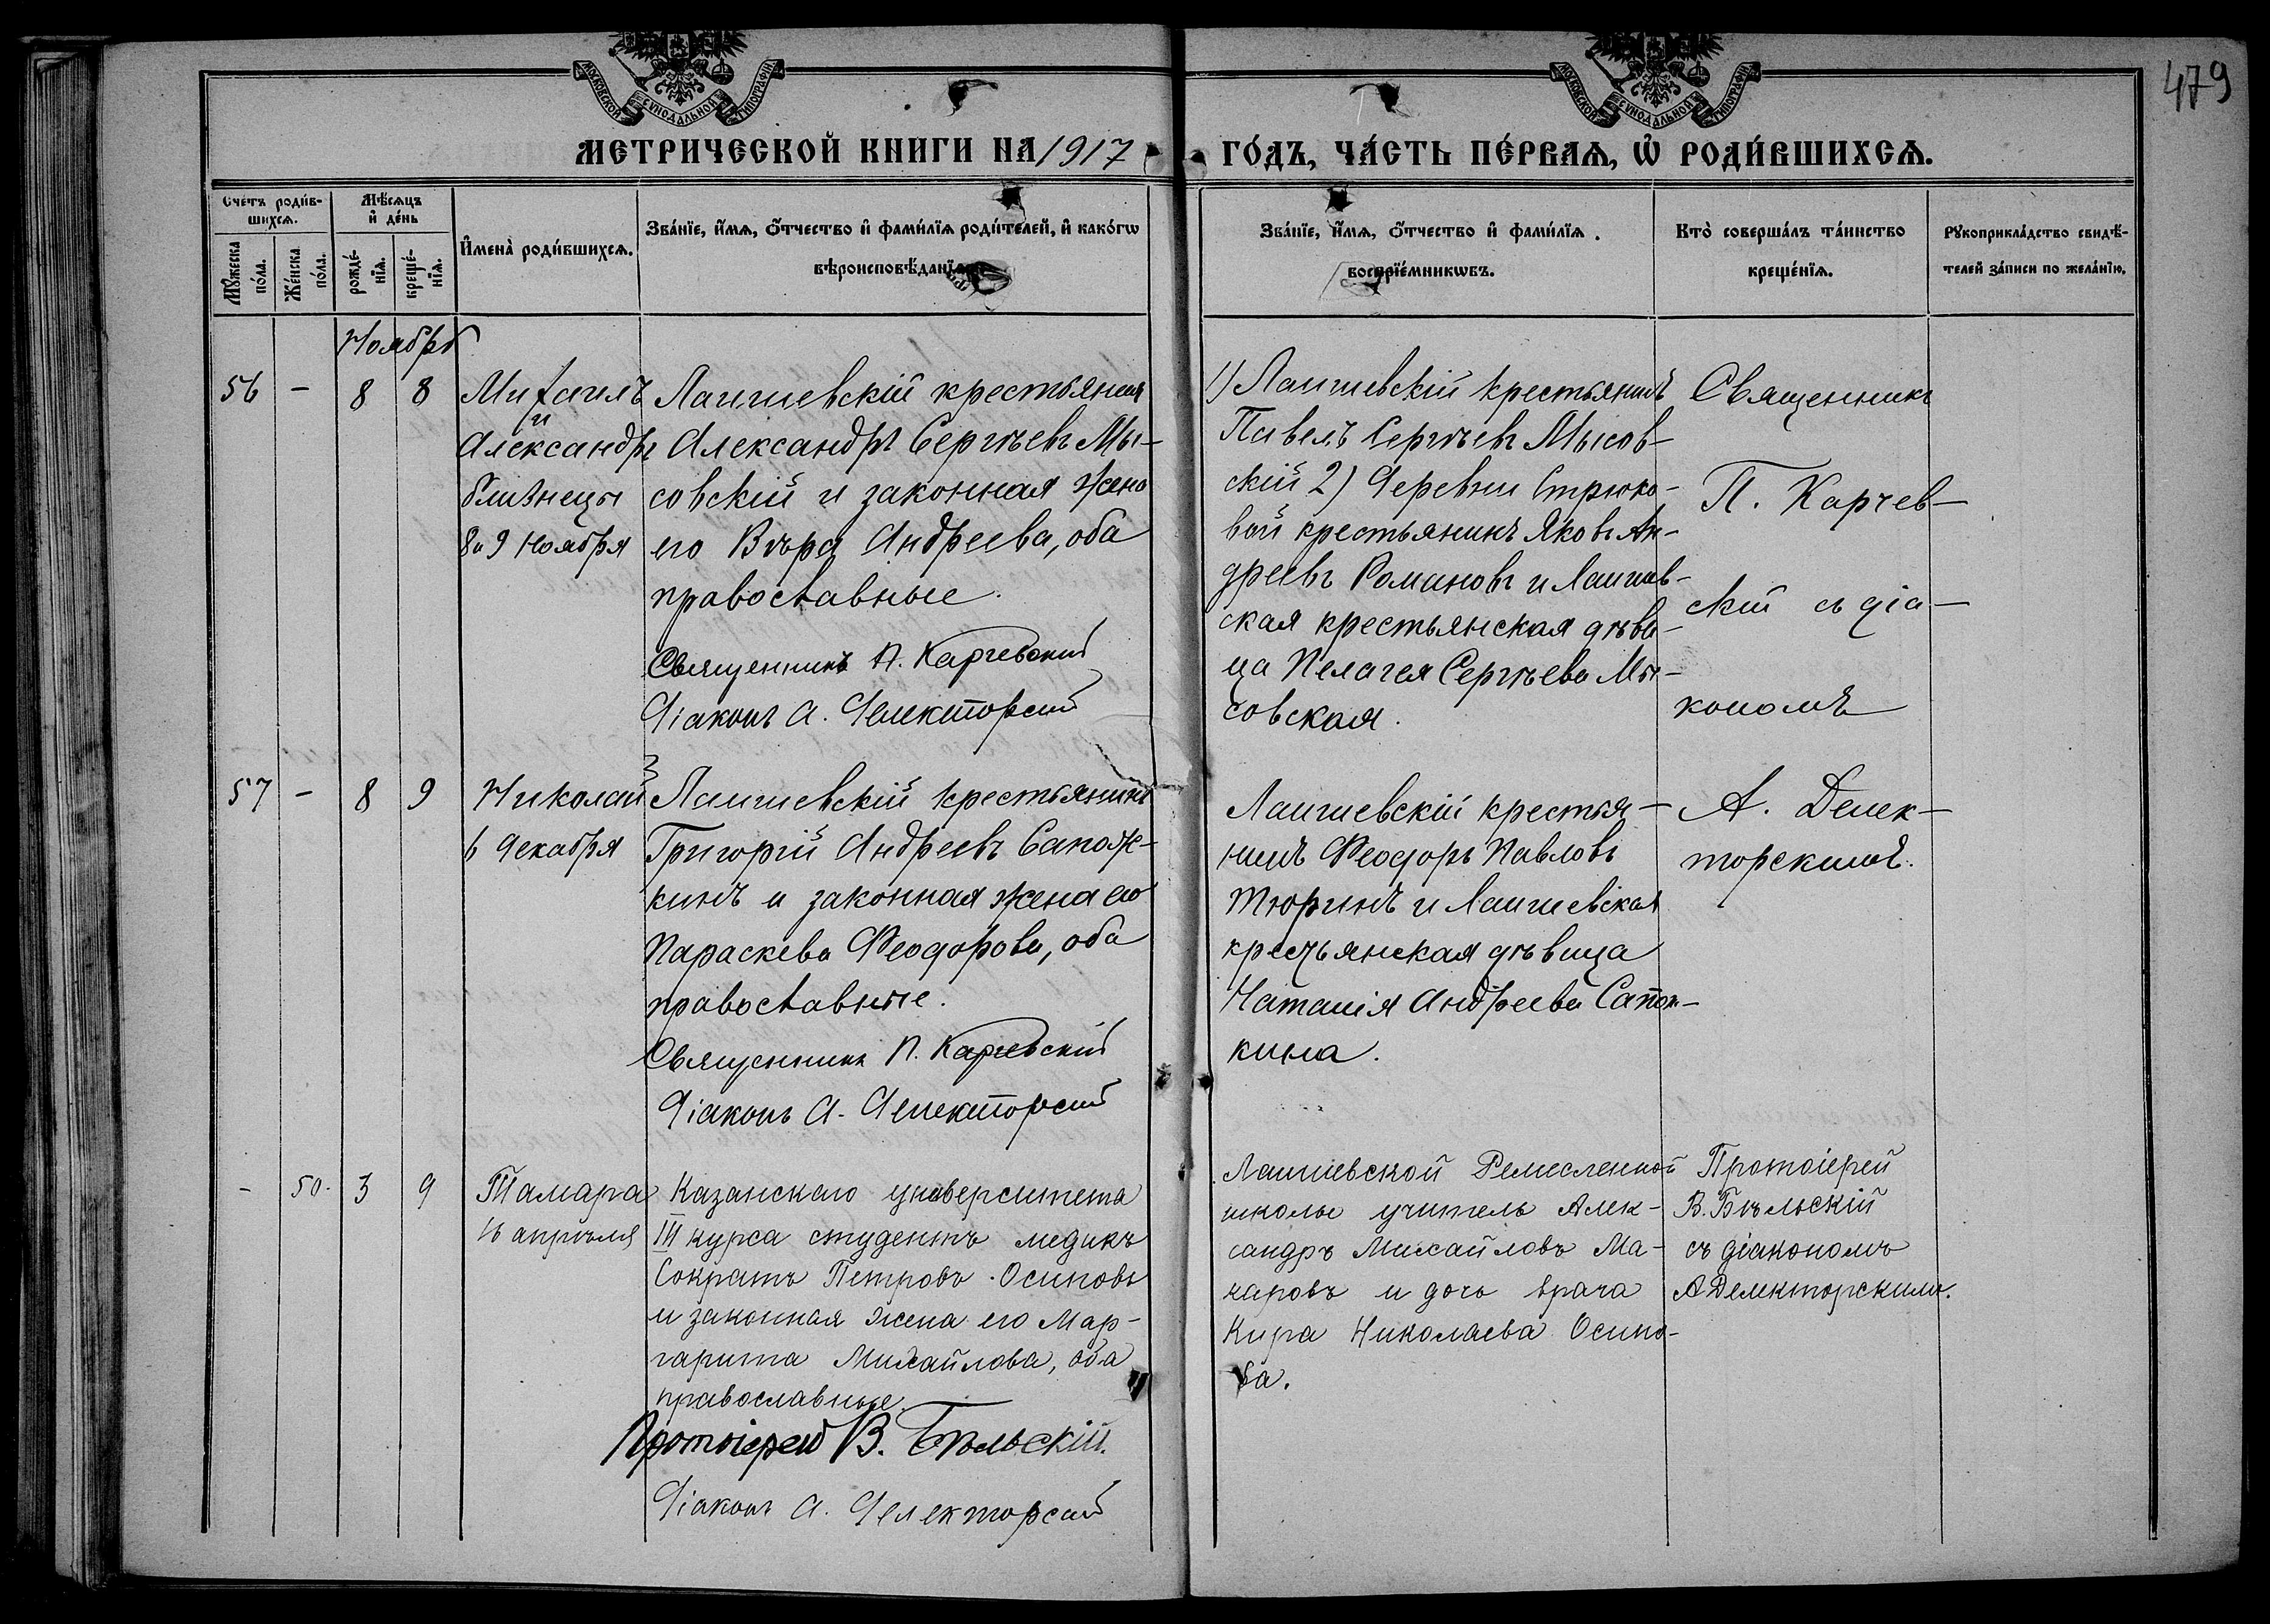 479
МОСКОВСКОЙ СУНОДАЛЬНОЙ ТИПОГРАФІИ
МОСКОВСКОЙ СУНОДАЛЬНОЙ ТИПОГРАФІИ
МЕТРИЧЕСКОЙ КНИГИ НА 1917 ГО́ДЪ, ЧА́СТЬ ПЕ́РВАѦ, Ѡ҆ РОДИ́ВШИХСѦ.
Сче́тъ роди́в-
шихсѧ.
Мꙋ́жеска по́ла.
Же́нска по́ла.
Мѣ́сѧцъ
и҆ де́нь
рожде́-
нїѧ.
креще́-
нїѧ.
И҆мена̀ роди́вшихсѧ.
Зва́нїе, и҆́мѧ, ѻ҆́тчество и҆ фами́лїѧ роди́телей, и҆ како́гѡ
вѣроисповѣ́данїѧ.
Зва́нїе, и҆́мѧ, ѻ҆́тчество и҆ фами́лїѧ
воспрїе́мникѡвъ.
Кто̀ соверша́лъ та́инство
креще́нїѧ.
Рꙋкоприкла́дство свидѣ́-
телей за́писи по жела́нїю.
Ноябрь
56 – 8 8
Михаилъ
и
Александръ
близнецы
8 и 9 Ноября
Лаишевскій крестьянинъ
Александръ Сергѣевъ Мы-
совскій и законная жена
его Вѣра Андреева, оба
православные.
Священникъ П. Карчевскій
Діаконъ А. Делекторскій
1) Лаишевскій крестьянинъ
Павелъ Сергѣевъ Мысов-
скій 2) Деревни Стрюко-
вой крестьянинъ Яковъ Ан-
дреевъ Романовъ и Лаишев-
ская крестьянская дѣви-
ца Пелагея Сергѣева Мы-
совская.
Священникъ
П. Карчев-
скій съ діа-
кономъ
А. Делек-
торскимъ.
57 – 8 9
Николай
6 Декабря
Лаишевскій крестьянинъ
Григорій Андреевъ Сапож-
кинъ и законная жена его
Параскева Феодорова, оба
православные.
Священникъ П. Карчевскій
Діаконъ А. Делекторскій
Лаишевскій крестья-
нинъ Феодоръ Павловъ
Тюринъ и Лаишевская
крестьянская дѣвица
Наталія Андреева Сапож-
кина.
– 50. 3 9
Тамара
16 апрѣля
Казанскаго университета
III курса студентъ медикъ
Сократъ Петровъ Осиповъ
и законная жена его Мар-
гарита Михайлова, оба
православные.
Протоіерей В. Бѣльскій.
Діаконъ А. Делекторскій
Лаишевской Ремесленной
школы учитель Алек-
сандръ Михайловъ Ма-
каровъ и дочь врача
Кира Николаева Осипо-
ва.
Протоіерей
В. Бѣльскій
съ діакономъ
А Делекторскимъ.